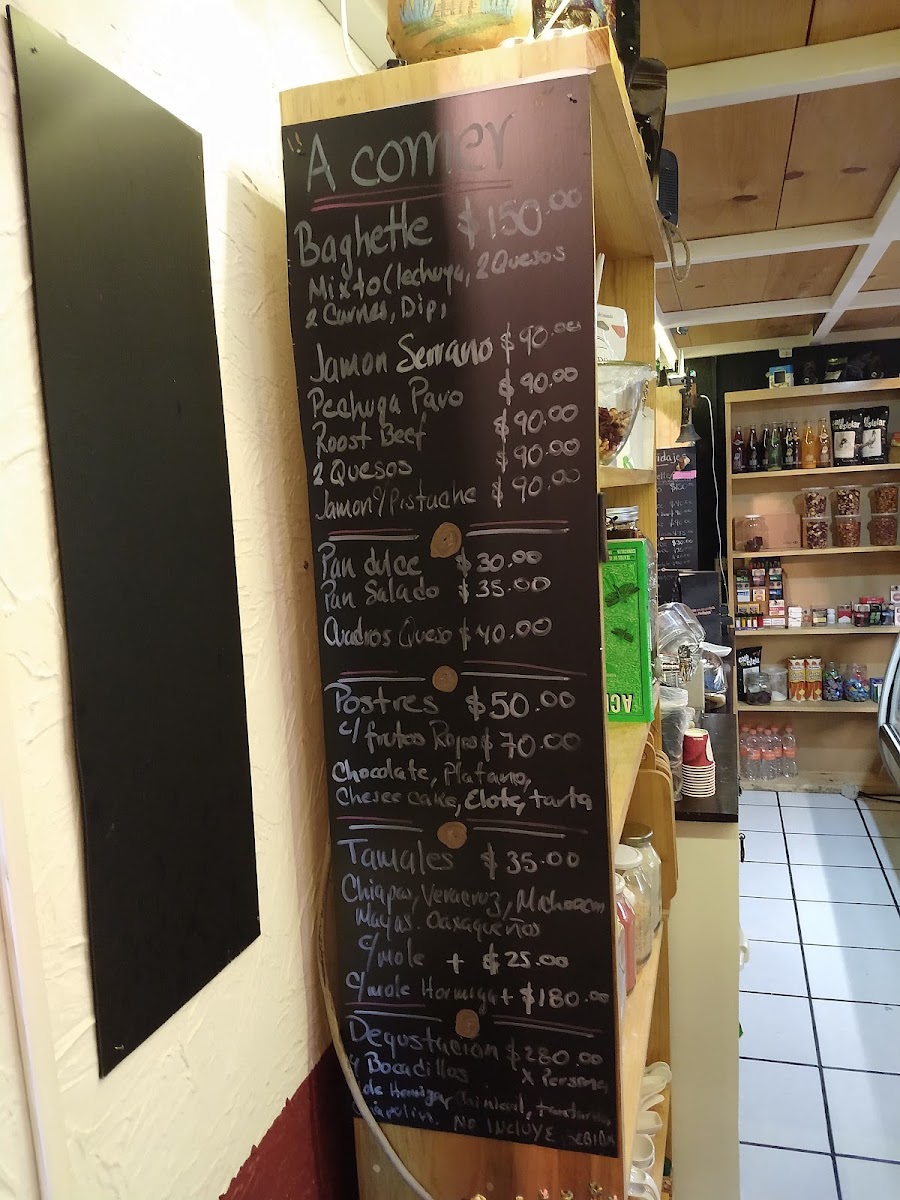 "A comer
Baghette $150.00
Mixto (lechuga, 2 Quesos
2 Carnes, Dip,
Jamon Serrano $90.00
Pechuga Pavo $90.00
Roost Beef $90.00
2 Quesos $90.00
Jamon c/Pistache $90.00
Pan dulce $30.00
Pan Salado $35.00
Cuadros Queso $40.00
Postres $50.00
c/ frutos Rojos $70.00
Chocolate, Platano,
Chesee cake, Elote, tarta
Tamales $35.00
Chiapas, Veracruz, Michoacan
Mayas. Oaxaqueños
c/mole + $25.00
c/mole Hormiga + $180.00
Degustacion $280.00
4 Bocadillos x Persona
de Hormiga,
NO INCLUYE BEBIDA